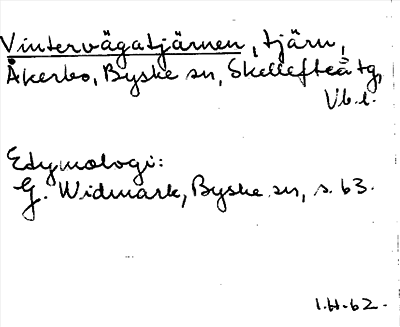 Vintervägatjärnen, tjärn,
Åkerbo, Byske sn, Skellefteå tg,
Vb.l.
Etymologi:
G. Widmark, Byske sn, s. 63.
1.H.62.